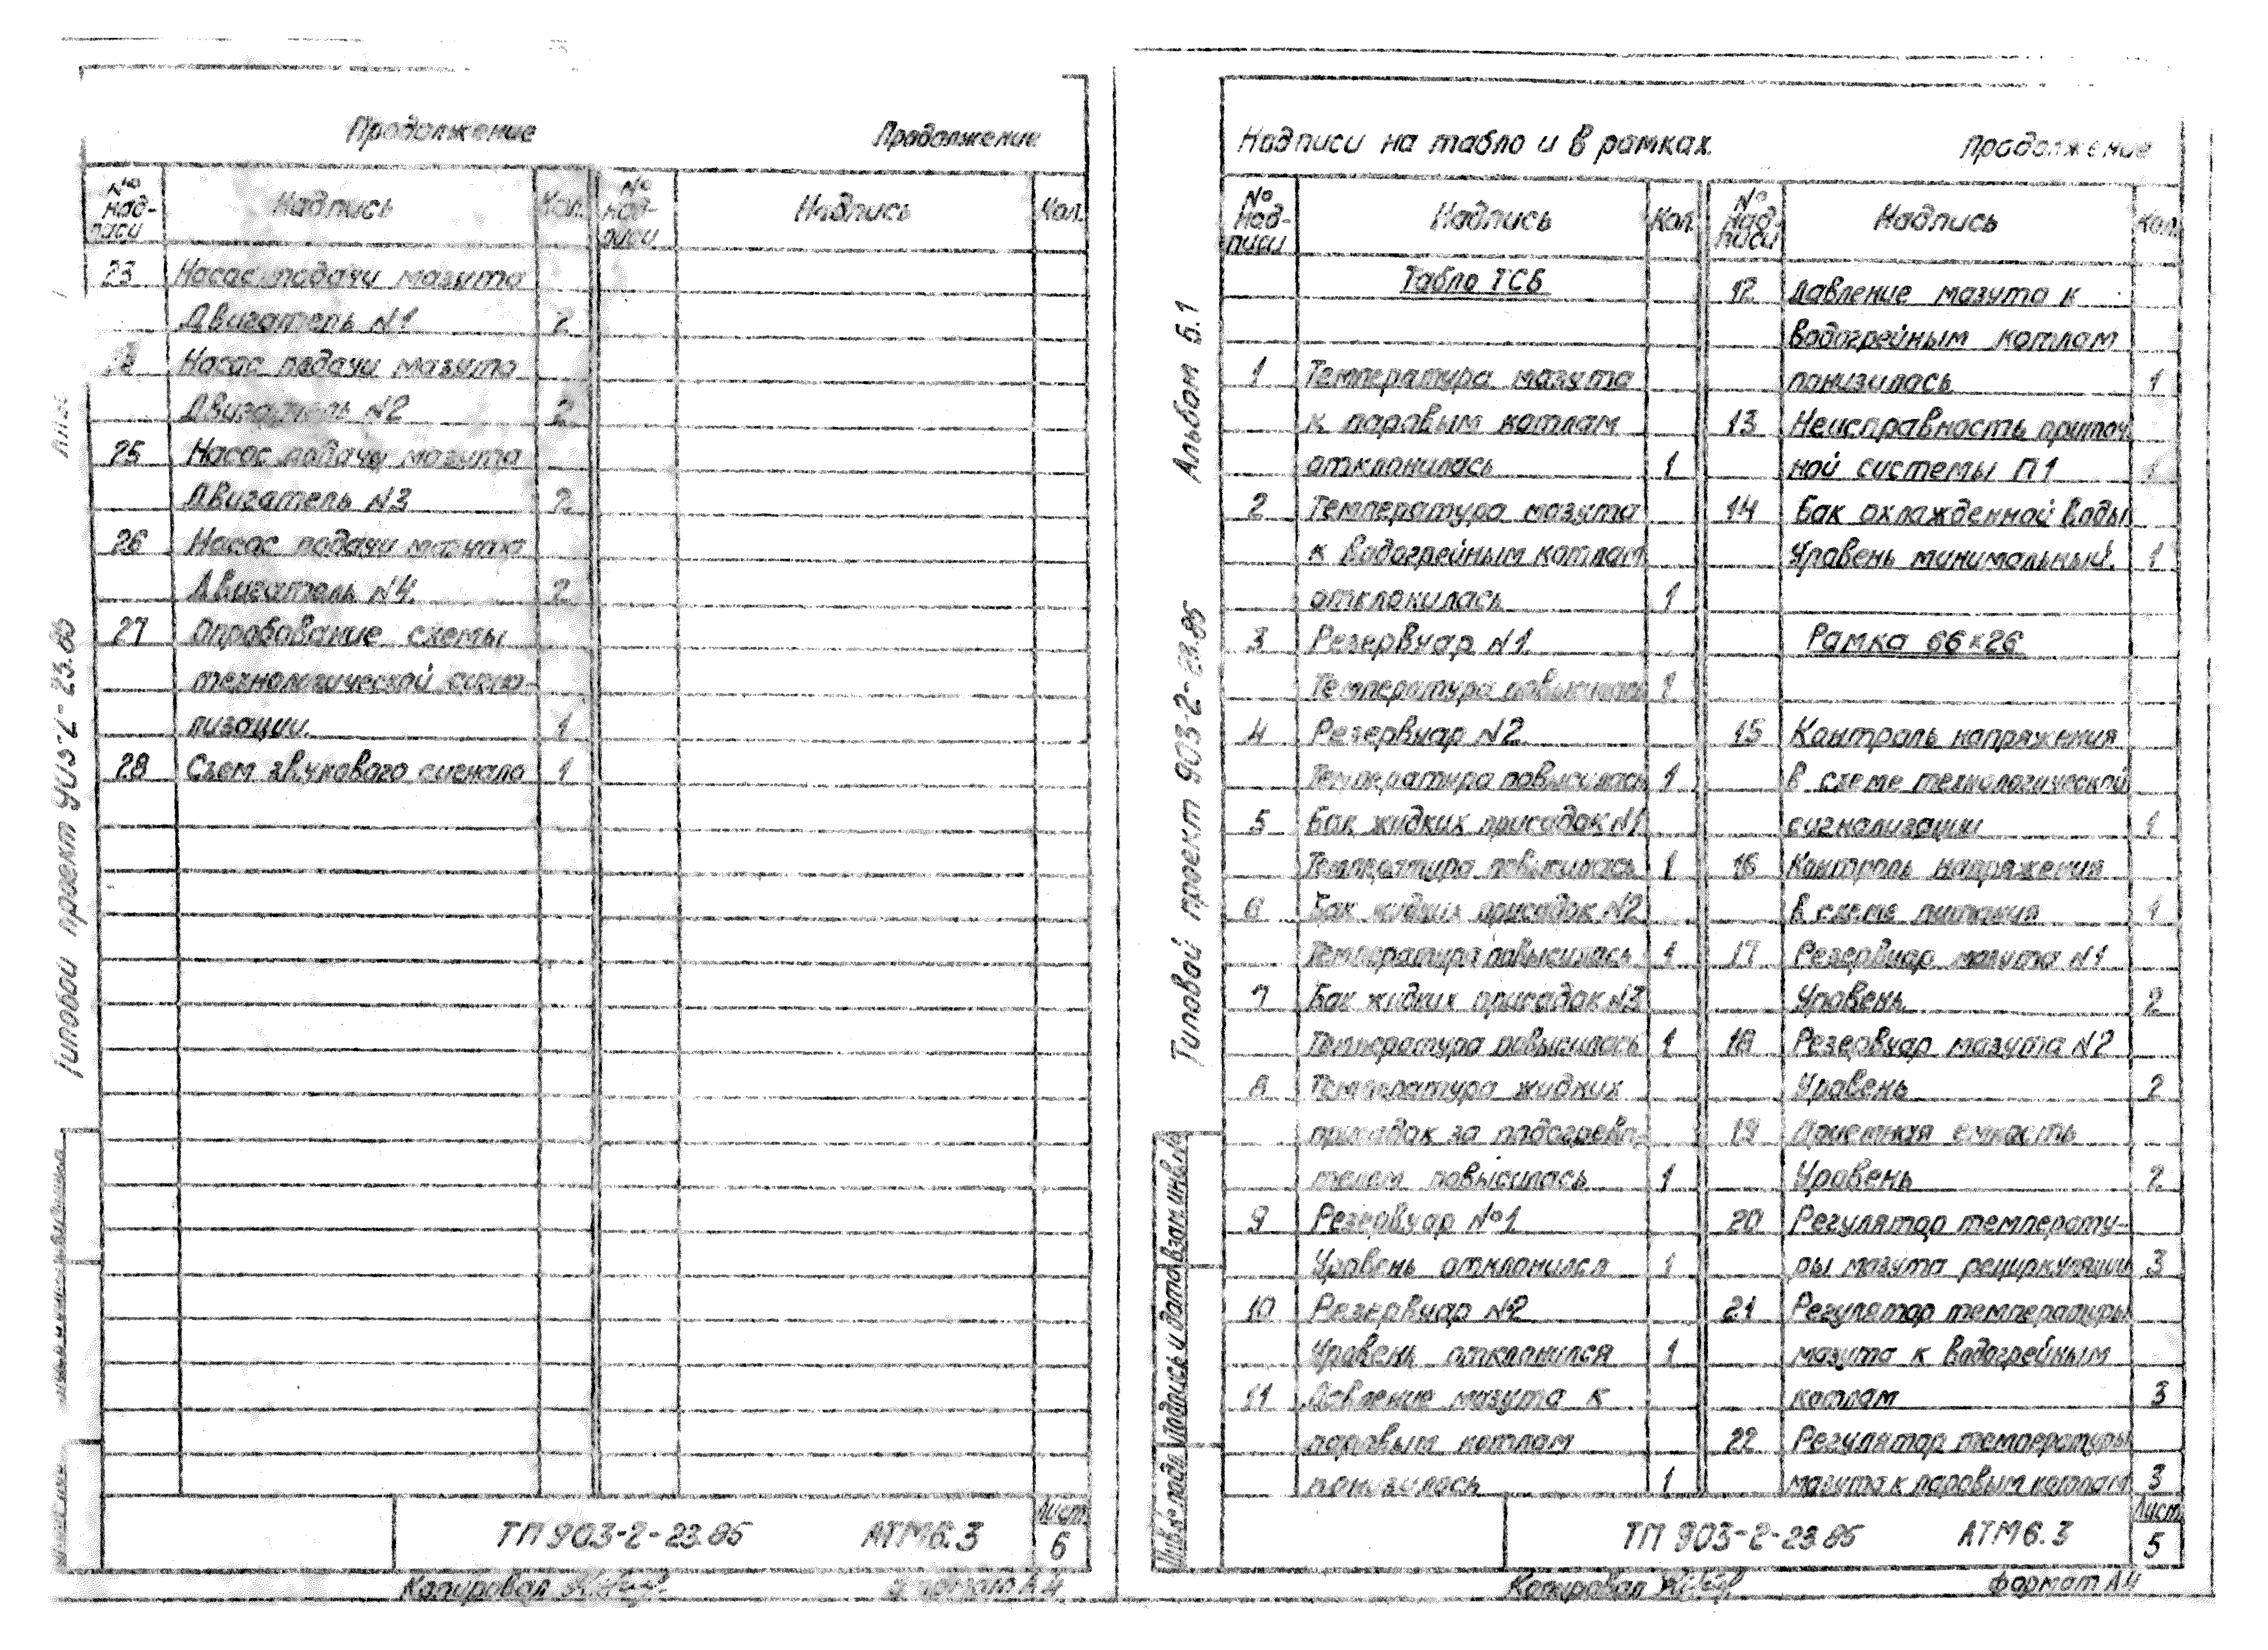 Продолжение
Продолжение
№ над-писи
Надпись
Кол.
№ над-писи
Надпись
Кол.
23 Насос подачи мазута
Двигатель N1 2
Насос подачи мазута
Двигатель N2 2
25 Насос подачи мазута
Двигатель N3 2
26 Насос подачи мазута
Двигатель N4. 2
27 Опробование схемы
технологической сигна-
лизации. 1
28 Съем звукового сигнала 1
Типовой проект 903-2-23.85
ТП 903-2-23.85 АТМ6.3
Лист
6
Копировал
Формат А4
Надписи на табло и в рамках
Продолжение
№ над-писи
Надпись
Кол.
№ над-писи
Надпись
Кол.
Табло ТСБ
1 Температура мазута
к паровым котлам
отклонилась 1
2 Температура мазута
к водогрейным котлам
отклонилась 1
3 Резервуар N1.
Температура повысилась 1
4 Резервуар N2
Температура повысилась 1
5 Бак жидких присадок N1
Температура повысилась 1
6 Бак жидких присадок N2
Температура повысилась 1
7 Бак жидких присадок N3
Температура повысилась 1
8 Температура жидких
присадок за подогрева-
телем повысилась 1
9 Резервуар №1
Уровень отклонился 1
10 Резервуар №2
Уровень отклонился 1
11 Давление мазута к
паровым котлам
понизилось 1
12 Давление мазута к
водогрейным котлам
понизилась 1
13 Неисправность приточ
ной системы П1 1
14 Бак охлажденной воды
Уровень минимальный. 1
Рамка 66×26
15 Контроль напряжения
в схеме технологической
сигнализации 1
16 Контроль напряжения
в схеме питания 1
17 Резервуар мазута N1
Уровень 2
18 Резервуар мазута N2
Уровень 2
19 Приемная емкость
Уровень 2
20 Регулятор температу-
ры мазута рециркуляции 3
21 Регулятор температуры
мазута к водогрейным
котлам 3
22 Регулятор температуры
мазута к паровым котлам 3
Альбом 6.1
Типовой проект 903-2-23.85
Взам.инв.№
Подпись и дата
Инв.№ подл.
ТП 903-2-23.85 АТМ6.3
Лист
5
Копировал
Формат А4